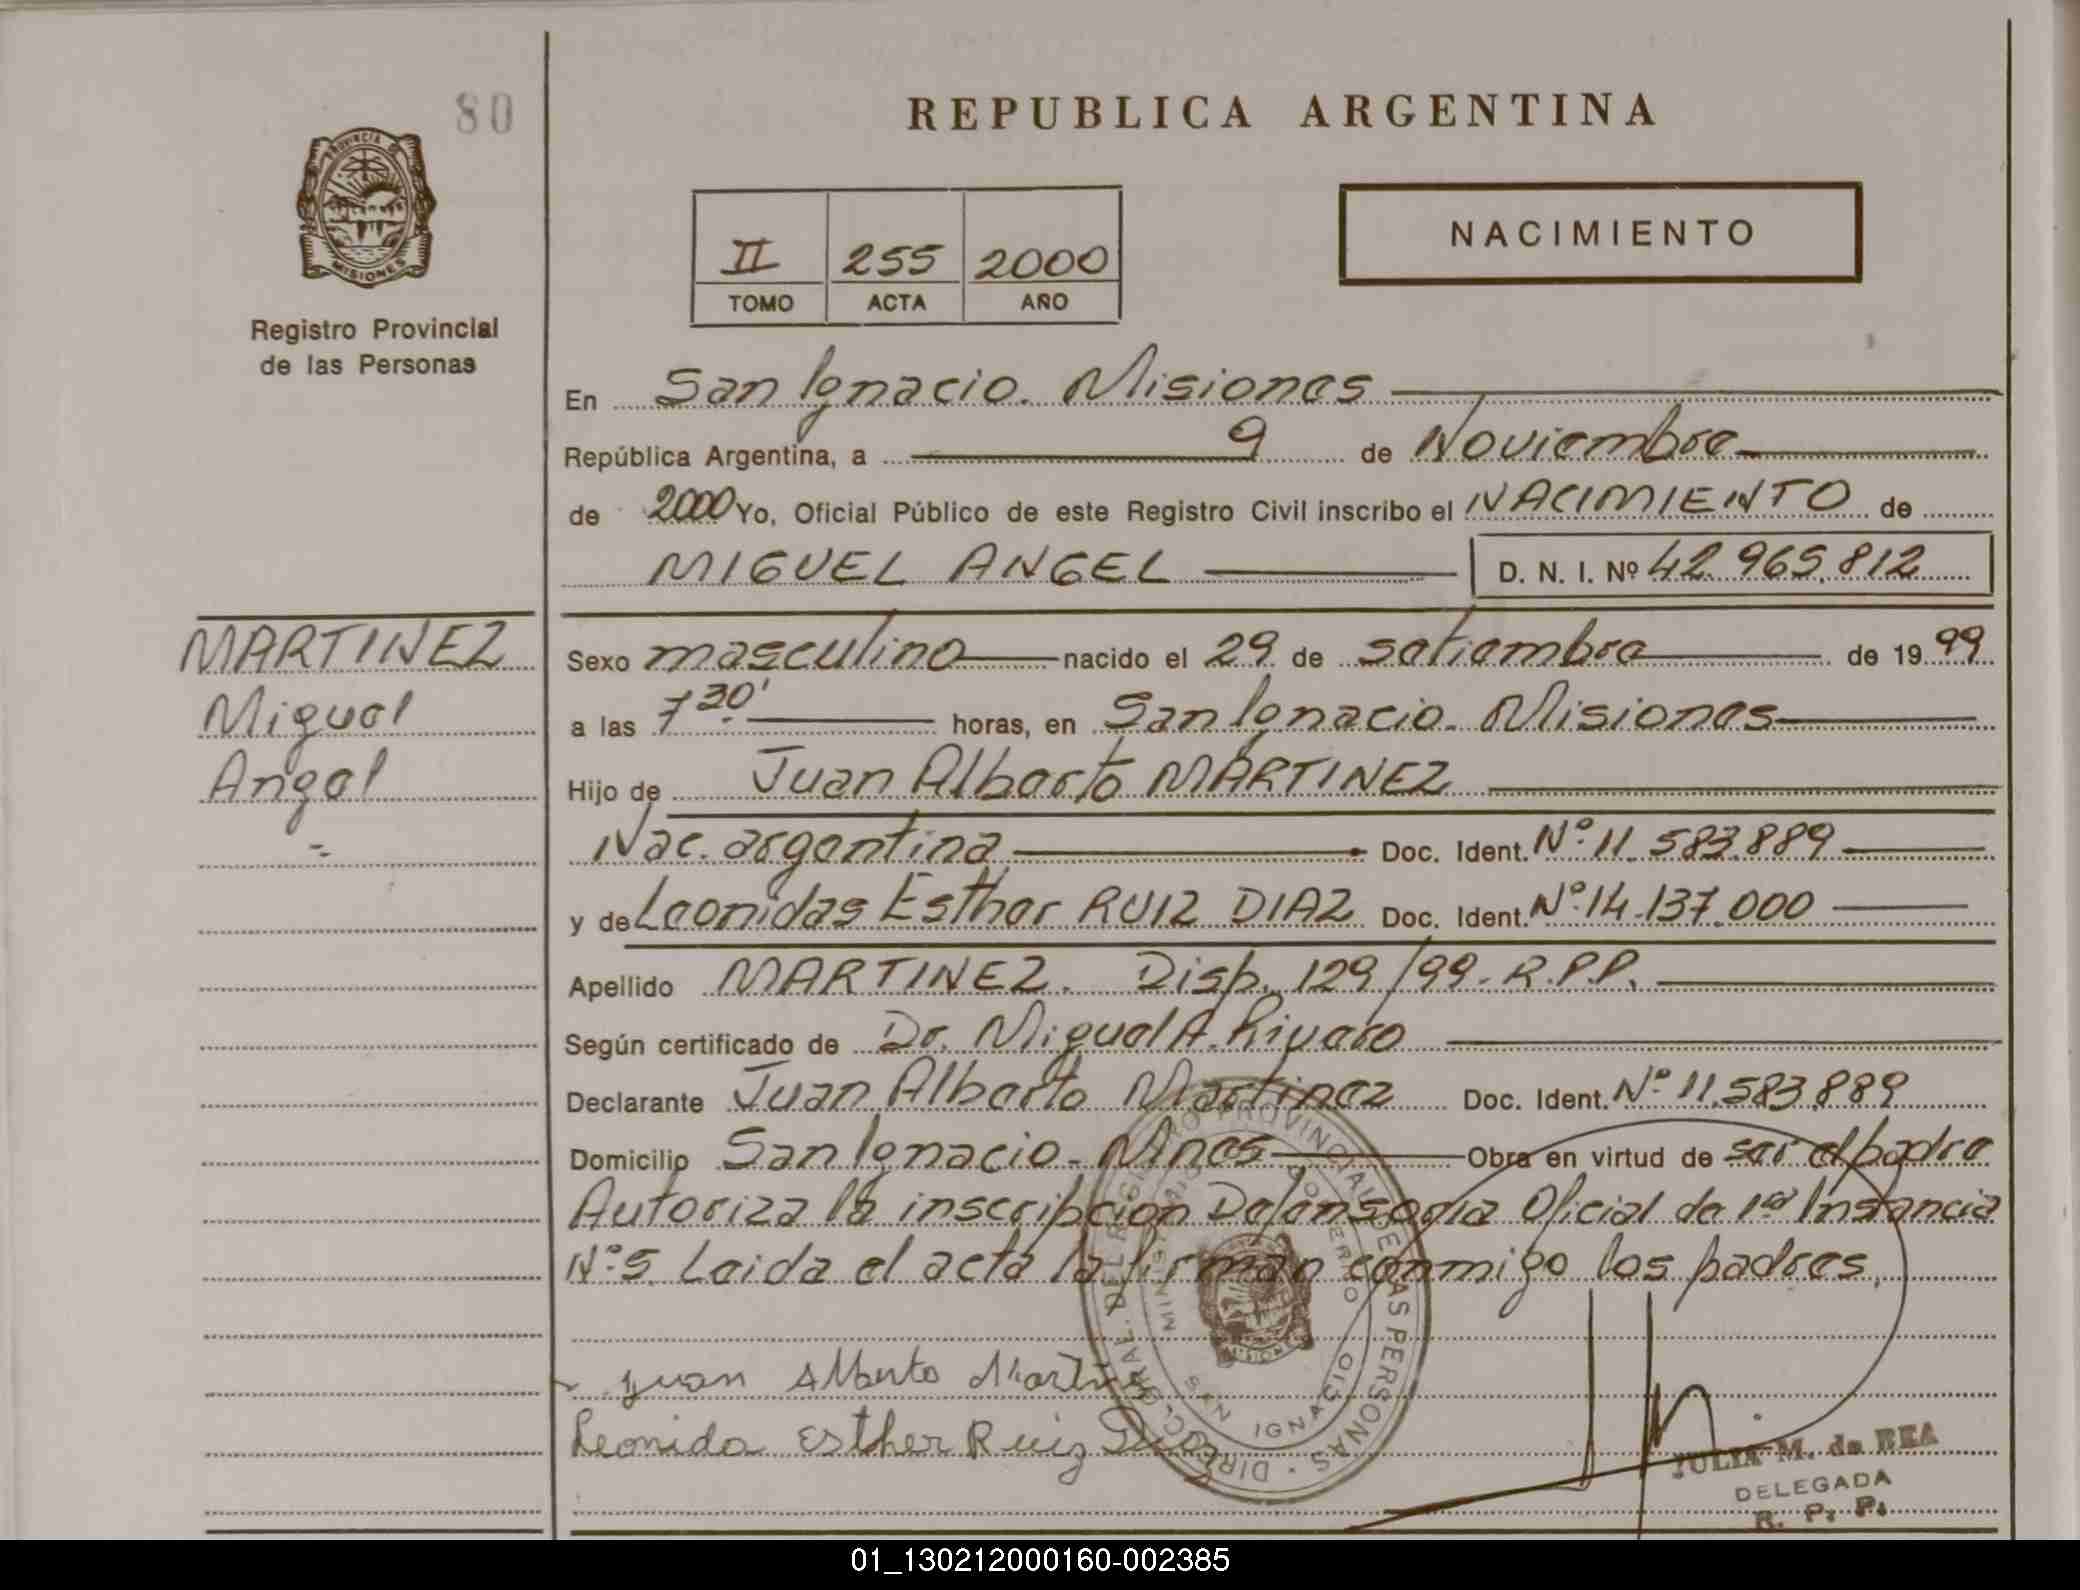 80
REPUBLICA ARGENTINA
PROVINCIA DE MISIONES
Registro Provincial
de las Personas
NACIMIENTO
II 255 2000
TOMO ACTA AÑO
En San Ignacio. Misiones
República Argentina, a 9 de Noviembre
de 2000 Yo, Oficial Público de este Registro Civil inscribo el NACIMIENTO de
MIGUEL ANGEL D. N. I. Nº 42.965.812
MARTINEZ
Miguel
Angel
Sexo masculino nacido el 29 de setiembre de 1999
a las 7 30' horas, en San Ignacio. Misiones
Hijo de Juan Alberto MARTINEZ
Nac. argentina Doc. Ident. Nº 11.583.889
y de Leonidas Esther RUIZ DIAZ Doc. Ident. Nº 14.137.000
Apellido MARTINEZ. Disp. 129/99. R.P.P.
Según certificado de Dr. Miguel A.
Declarante Juan Alberto Martinez Doc. Ident. Nº 11.583.889
Domicilio San Ignacio - Mnes Obra en virtud de ser el padre
Autoriza la inscripcion Defensoria Oficial de 1ra Instancia
Nº 5. Leida el acta la firman conmigo los padres.
Juan Alberto Martinez
Leonida Esther Ruiz Diaz
DIRECC. GRAL. DEL REGISTRO PROVINCIAL DE LAS PERSONAS
MINISTERIO GOBIERNO
MISIONES
SAN IGNACIO
JULIA M. de REA
DELEGADA
R. P. P.
01_130212000160-002385